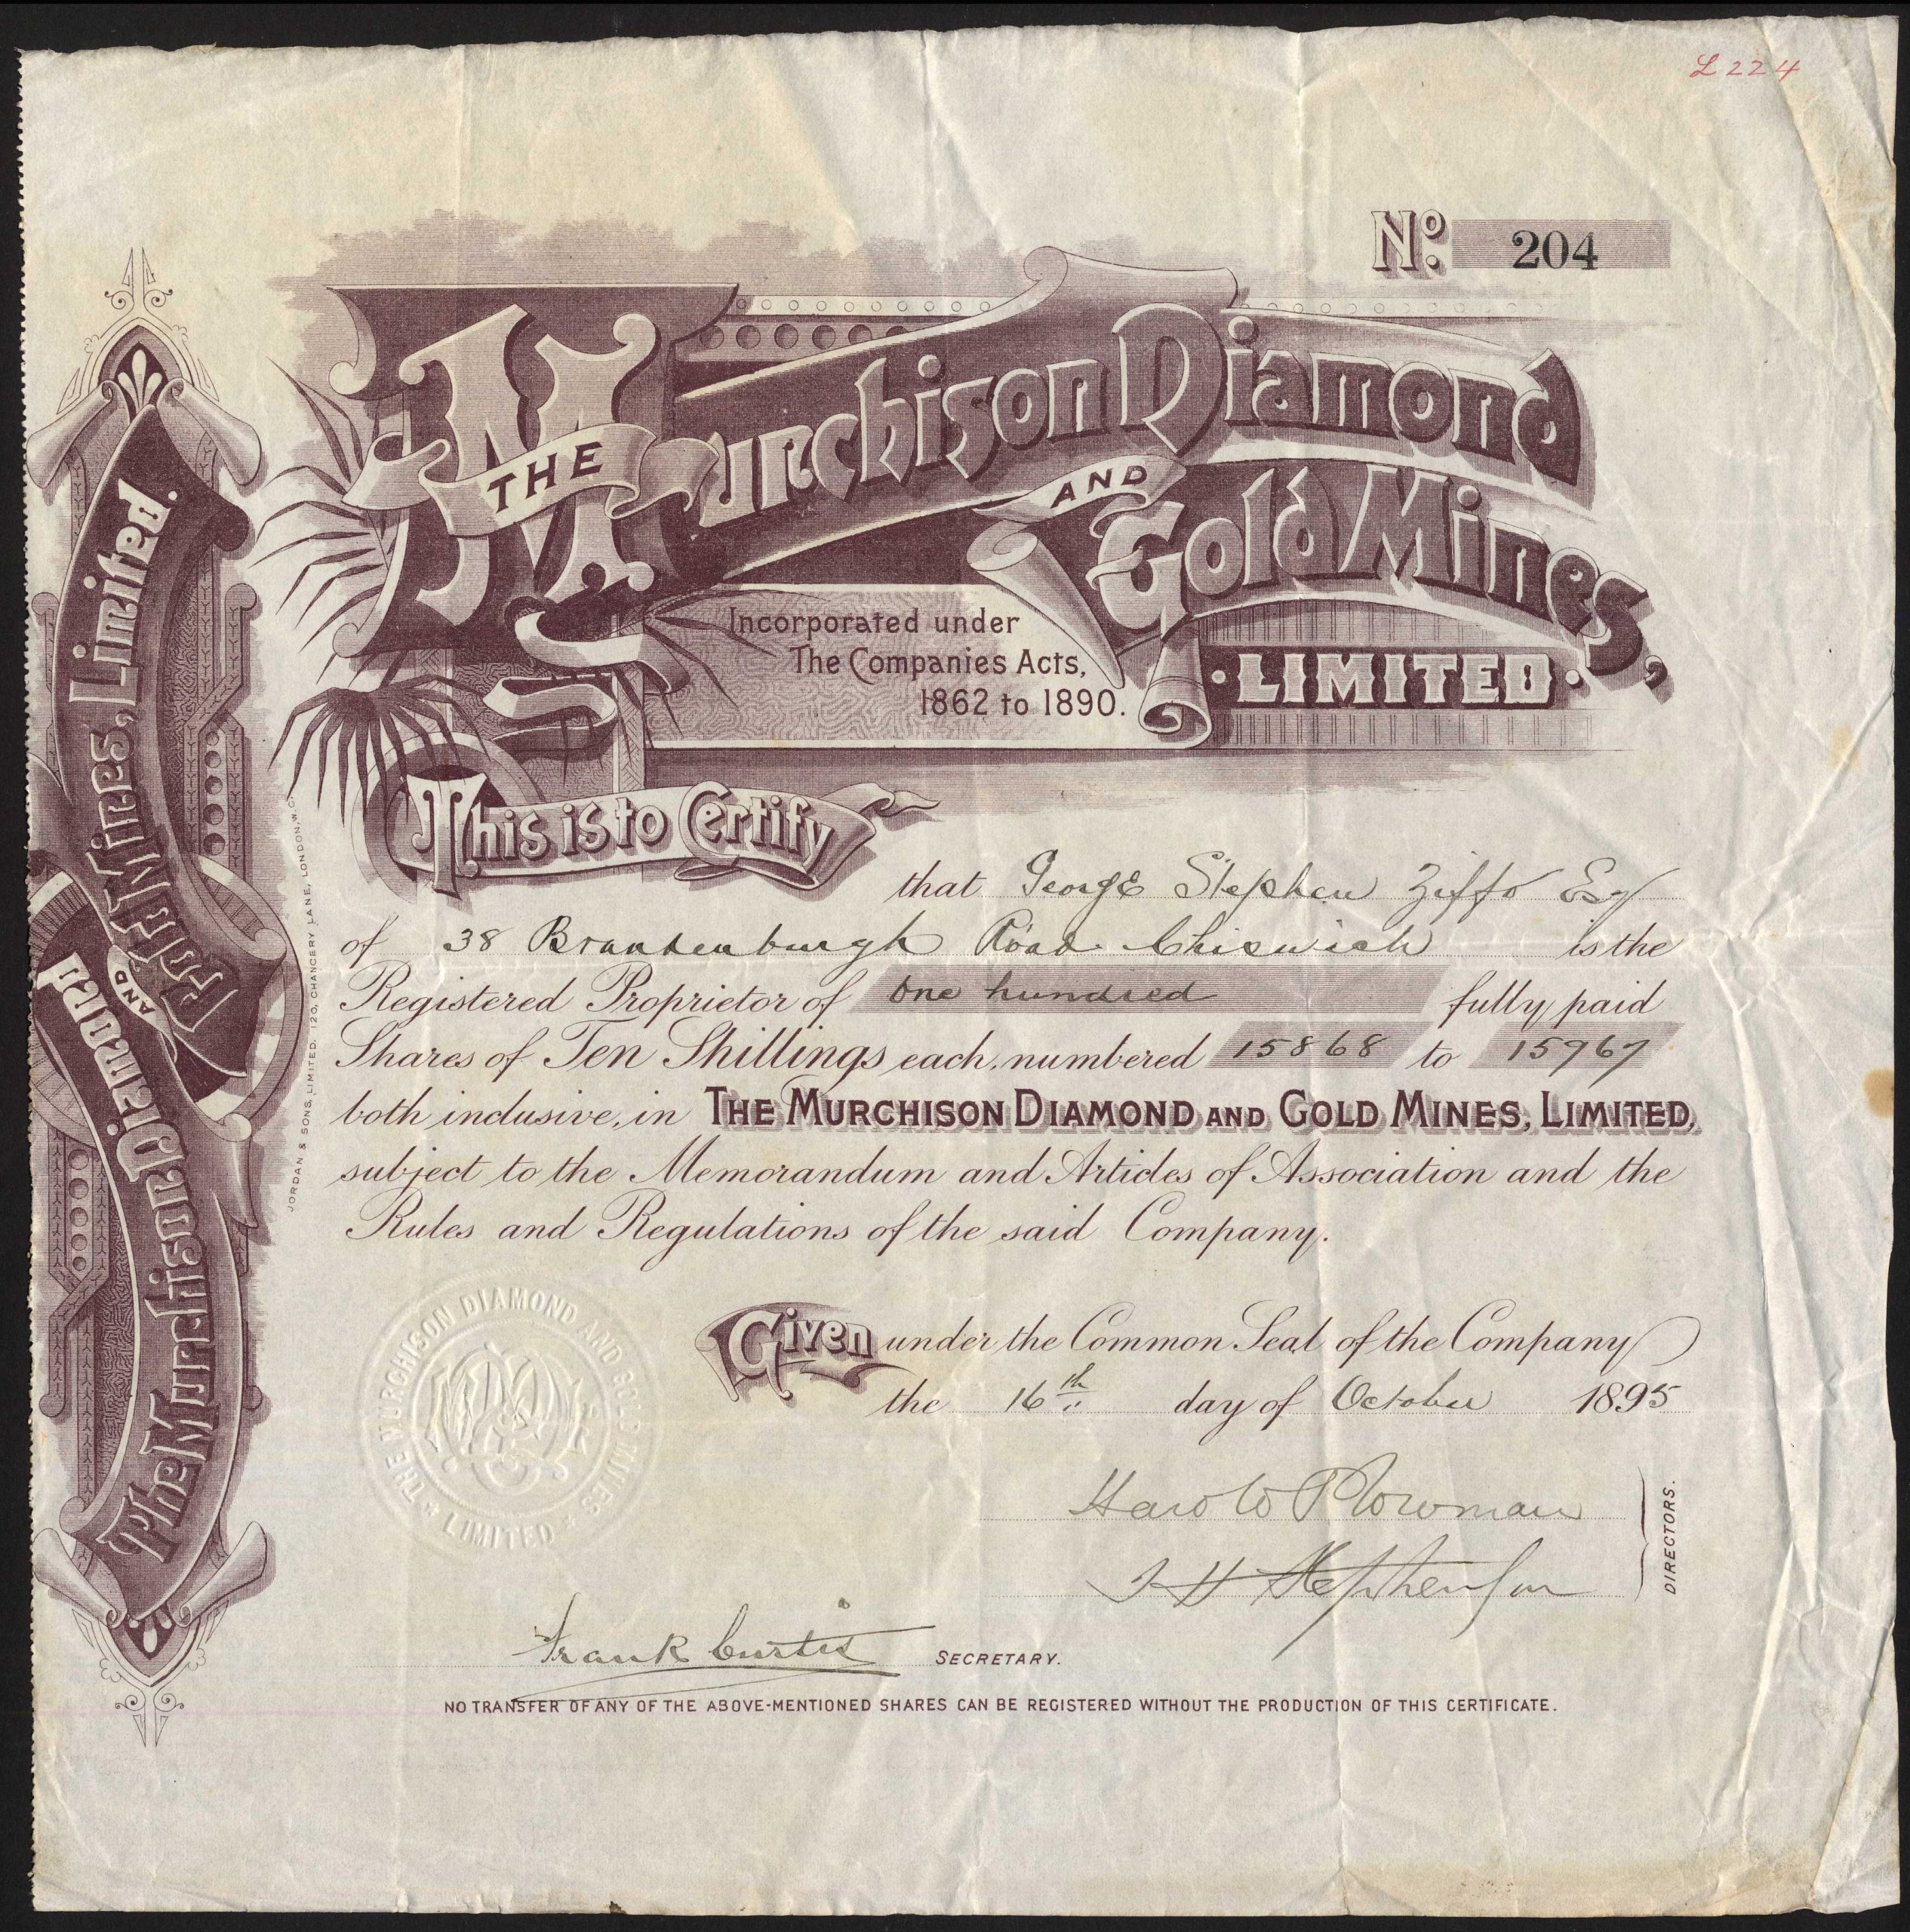 L 224
No. 204
THE Murchison Diamond
AND Gold Mines,
LIMITED.
Incorporated under
The Companies Acts,
1862 to 1890.
This is to Certify
that George Stephen Ziffo Esq
of 38 Brandenburgh Road Chiswick is the
Registered Proprietor of One hundred fully paid
Shares of Ten Shillings each, numbered 15868 to 15967
both inclusive, in THE MURCHISON DIAMOND AND GOLD MINES, LIMITED,
subject to the Memorandum and Articles of Association and the
Rules and Regulations of the said Company.
Given under the Common Seal of the Company
the 16th day of October 1895
Harold Plowman
DIRECTORS.
J H Stephenson
Frank Curtis SECRETARY.
NO TRANSFER OF ANY OF THE ABOVE-MENTIONED SHARES CAN BE REGISTERED WITHOUT THE PRODUCTION OF THIS CERTIFICATE.
THE MURCHISON DIAMOND AND GOLD MINES
* LIMITED *
The Murchison Diamond
AND
Gold Mines, Limited.
JORDAN & SONS, LIMITED, 120, CHANCERY LANE, LONDON, W.C.